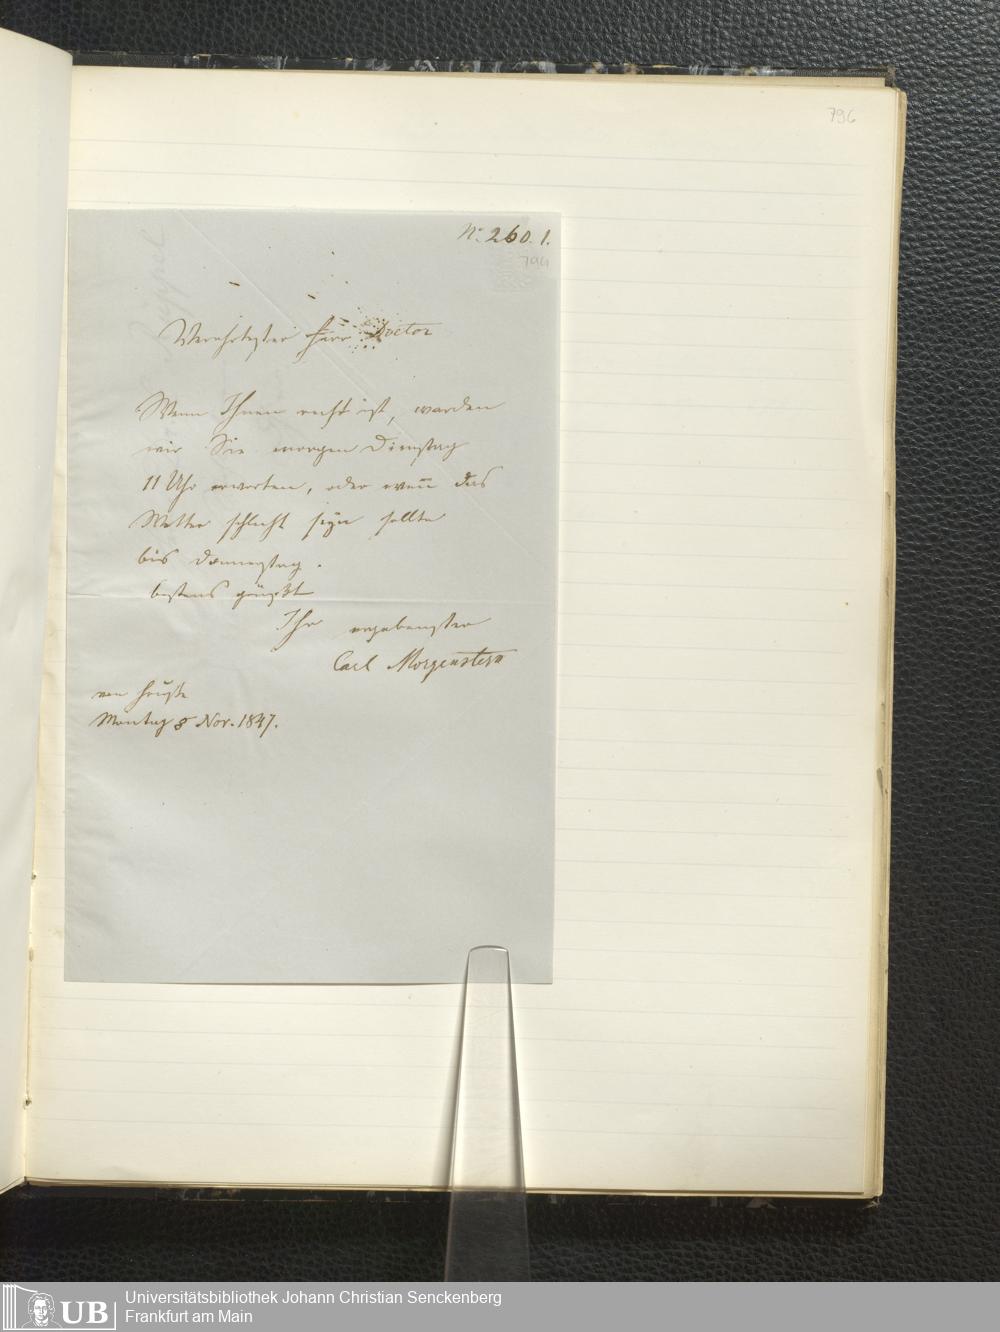 796
No. 260. 1.
794
Verehrtester Herr Doctor
Wenn Ihnen recht ist, werden
wir Sie morgen Dienstag
11 Uhr erwarten, oder wen̄ das
Wetter schlecht seyn sollte
bis Donnerstag.
bestens grüßt
Ihr ergebenster
Carl Morgenstern
von Hauße
Montag 8 Nov. 1847.
UB
Universitätsbibliothek Johann Christian Senckenberg
Frankfurt am Main